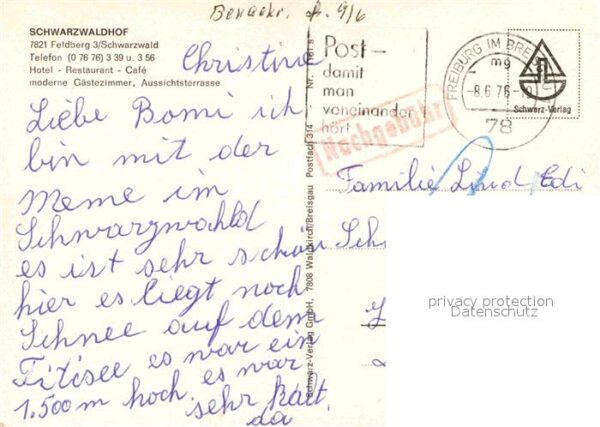 SCHWARZWALDHOF
7821 Feldberg 3/Schwarzwald
Telefon (0 76 76) 3 39 u. 3 56
Hotel - Restaurant - Café
moderne Gästezimmer, Aussichtsterrasse
9/6
Christine
Liebe Bomi ich
bin mit der
Meme im
Schwarzwahld
es ist sehr schön
hier es liegt noch
Schnee auf dem
Titisee es war ein
1.500m hoch. es war
sehr kalt
da
Schwarz-Verlag GmbH, 7808 Waldkirch/Breisgau Postfach 314
Post-
damit
man
voneinander
hört
FREIBURG IM BREISGAU
mg
-8.6.76-
78
Schwarz-Verlag
Nachgebühr
Familie Lind Edi
Sch
privacy protection
Datenschutz